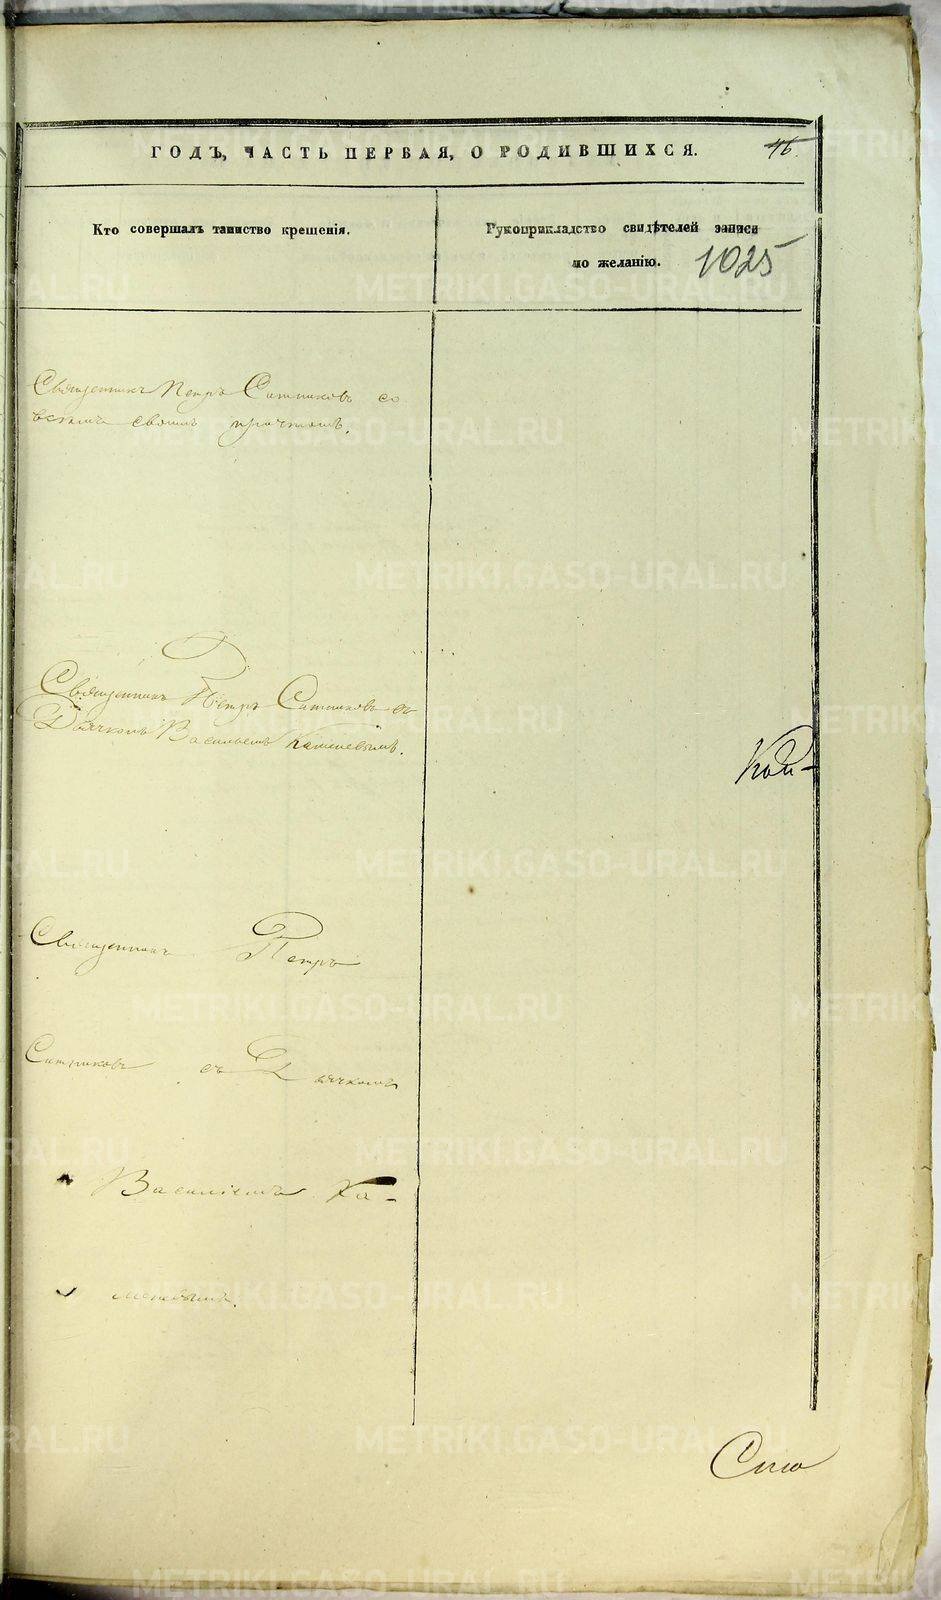 ГОДЪ, ЧАСТЬ ПЕРВАЯ, О РОДИВШИХСЯ. 46.
Кто совершалъ таинство крещенія.
Рукоприкладство свидѣтелей записи
по желанію. 1025
Священникъ Петръ Ситниковъ со
всѣмъ своимъ причтомъ.
Священникъ Петръ Ситниковъ съ
Дьячкомъ Васильемъ
Священникъ Петръ
Ситниковъ съ Дьячкомъ
Василіемъ Ка-
меневымъ.
METRIKI.GASO-URAL.RU